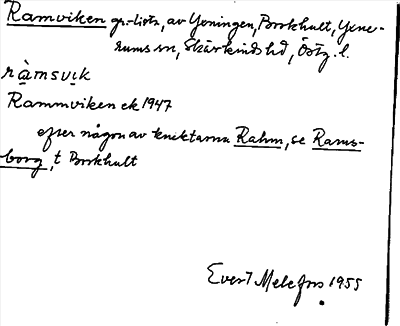 Ramviken gr.-lista, av Yxningen, Borkhult, Yxne-
rums sn, Skärkinds hd, Östg. l.
ràmsvik
Rammviken ek 1947
efter någon av knektarna Rahm, se Rams-
borg, t Borkhult
Evert Melefors 1955